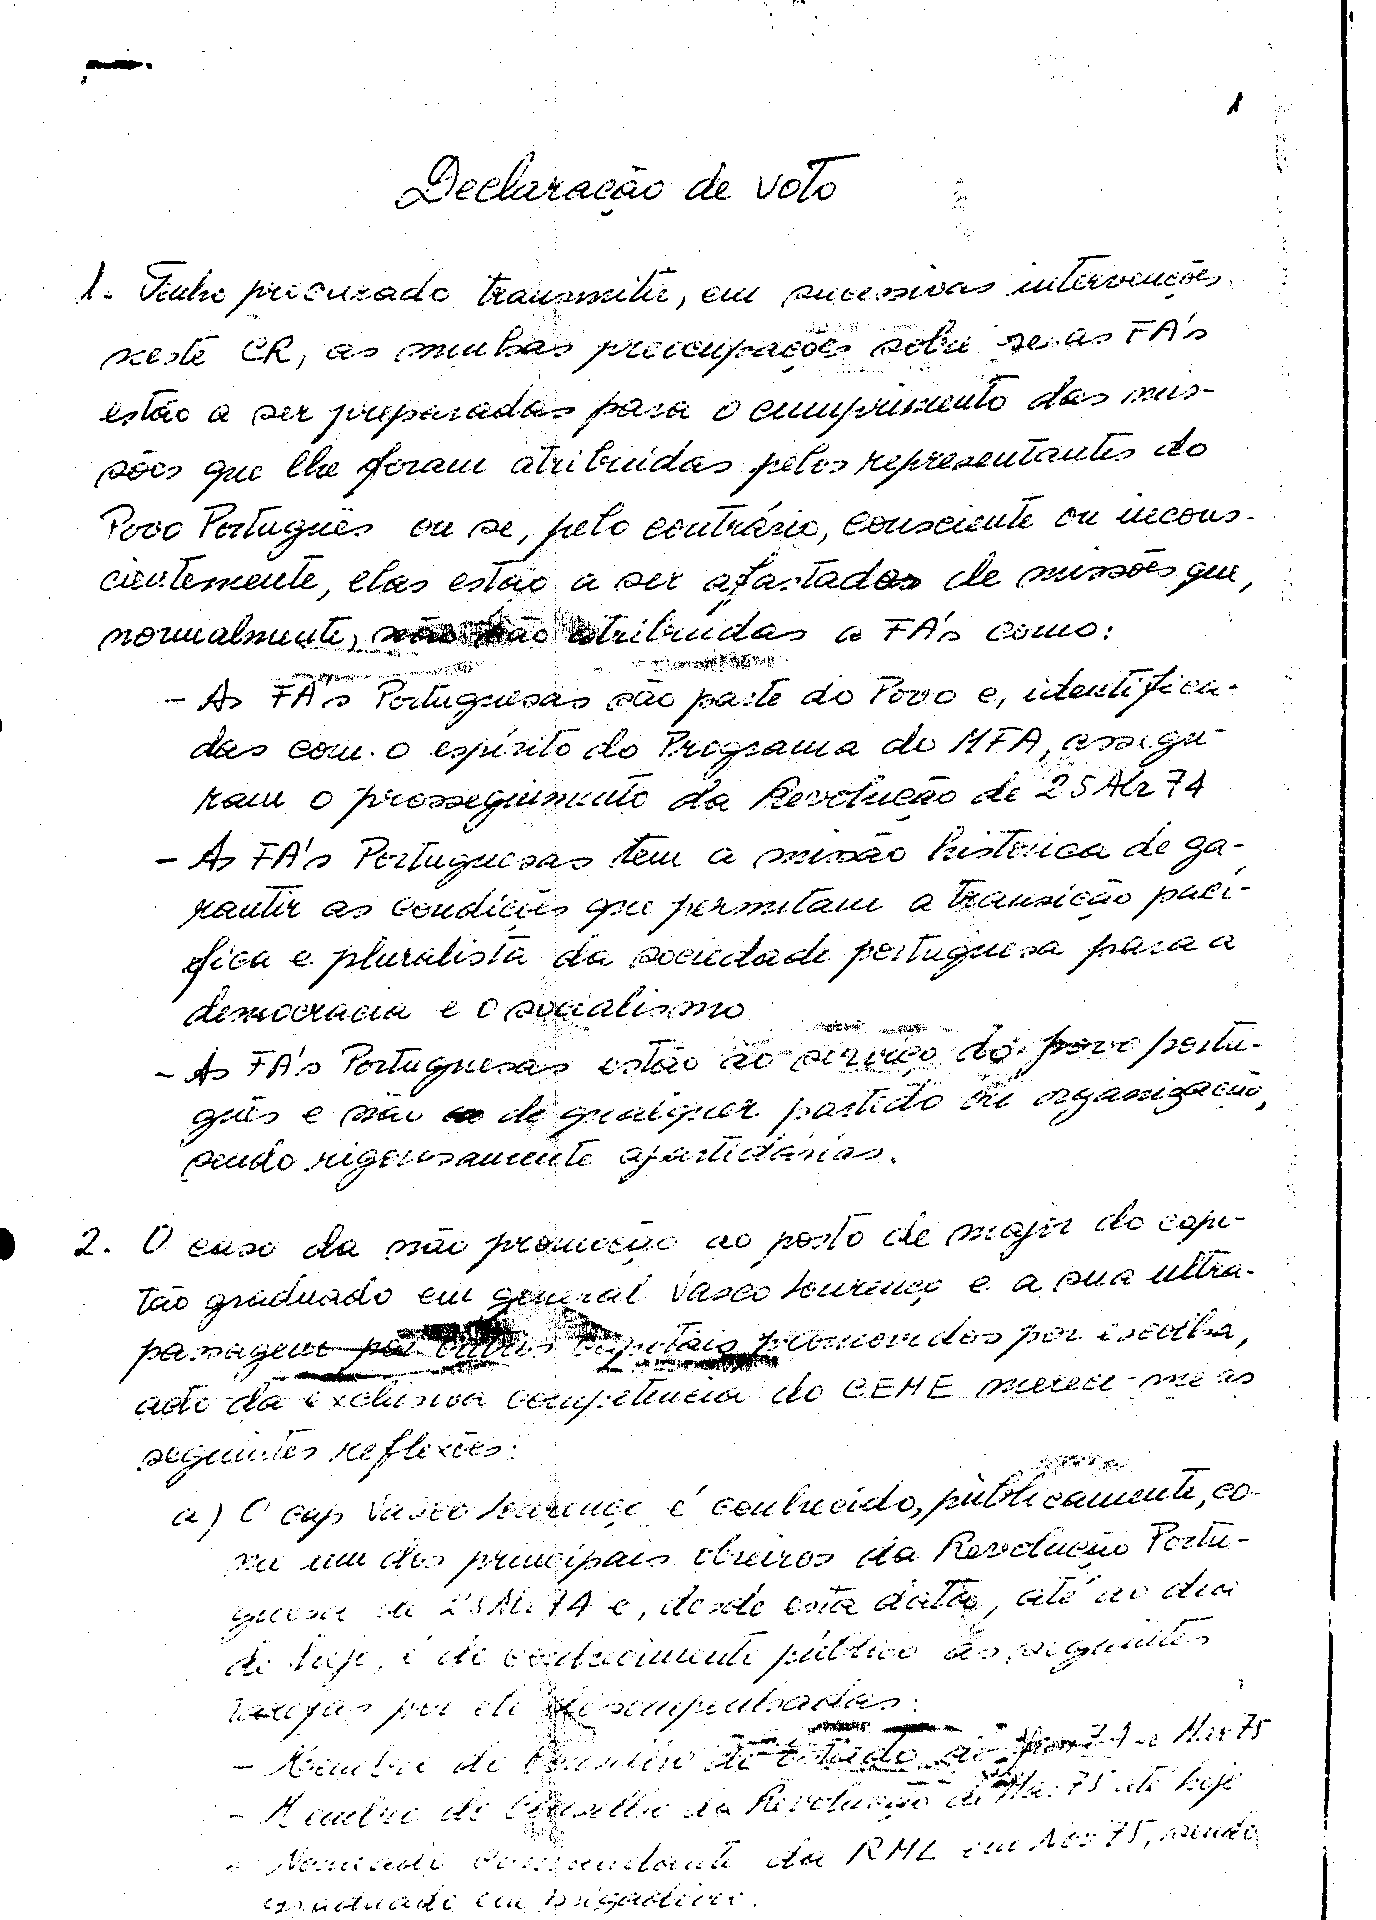 1
Declaração de voto
1. Tenho procurado transmitir, em sucessivas intervenções
neste CR, as minhas preocupações sobre se as FA's
estão a ser preparadas para o cumprimento das mis-
sões que lhe foram atribuídas pelos representantes do
Povo Português ou se, pelo contrário, consciente ou incons-
cientemente, elas estão a ser afastadas de missões que,
normalmente, não são atribuídas a FA's como:
- As FA's Portuguesas são parte do Povo e, identifica-
das com o espírito do Programa do MFA, assegu-
ram o prosseguimento da Revolução de 25 Abr 74
- As FA's Portuguesas tem a missão histórica de ga-
rantir as condições que permitam a transição pací-
fica e pluralista da sociedade portuguesa para a
democracia e o socialismo
- As FA's Portuguesas estão ao serviço do povo portu-
guês e não de qualquer partido ou organização,
sendo rigorosamente apartidárias.
2. O caso da não promoção ao posto de major do capi-
tão graduado em general Vasco Lourenço e a sua ultra-
passagem por outros capitães promovidos por escolha,
acto da exclusiva competência do CEME merece-me as
seguintes reflexões:
a) O cap Vasco Lourenço é conhecido, publicamente, co-
mo um dos principais obreiros da Revolução Portu-
guesa de 25 Abr 74 e, desde esta data, até ao dia
de hoje, é de conhecimento público as seguintes
tarefas por ele desempenhadas:
- Membro do Conselho de Estado de 74 e Mar 75
- Membro do Conselho da Revolução de Mar 75 até hoje
- Nomeado comandante da RML em Nov 75, sendo
graduado em brigadeiro.